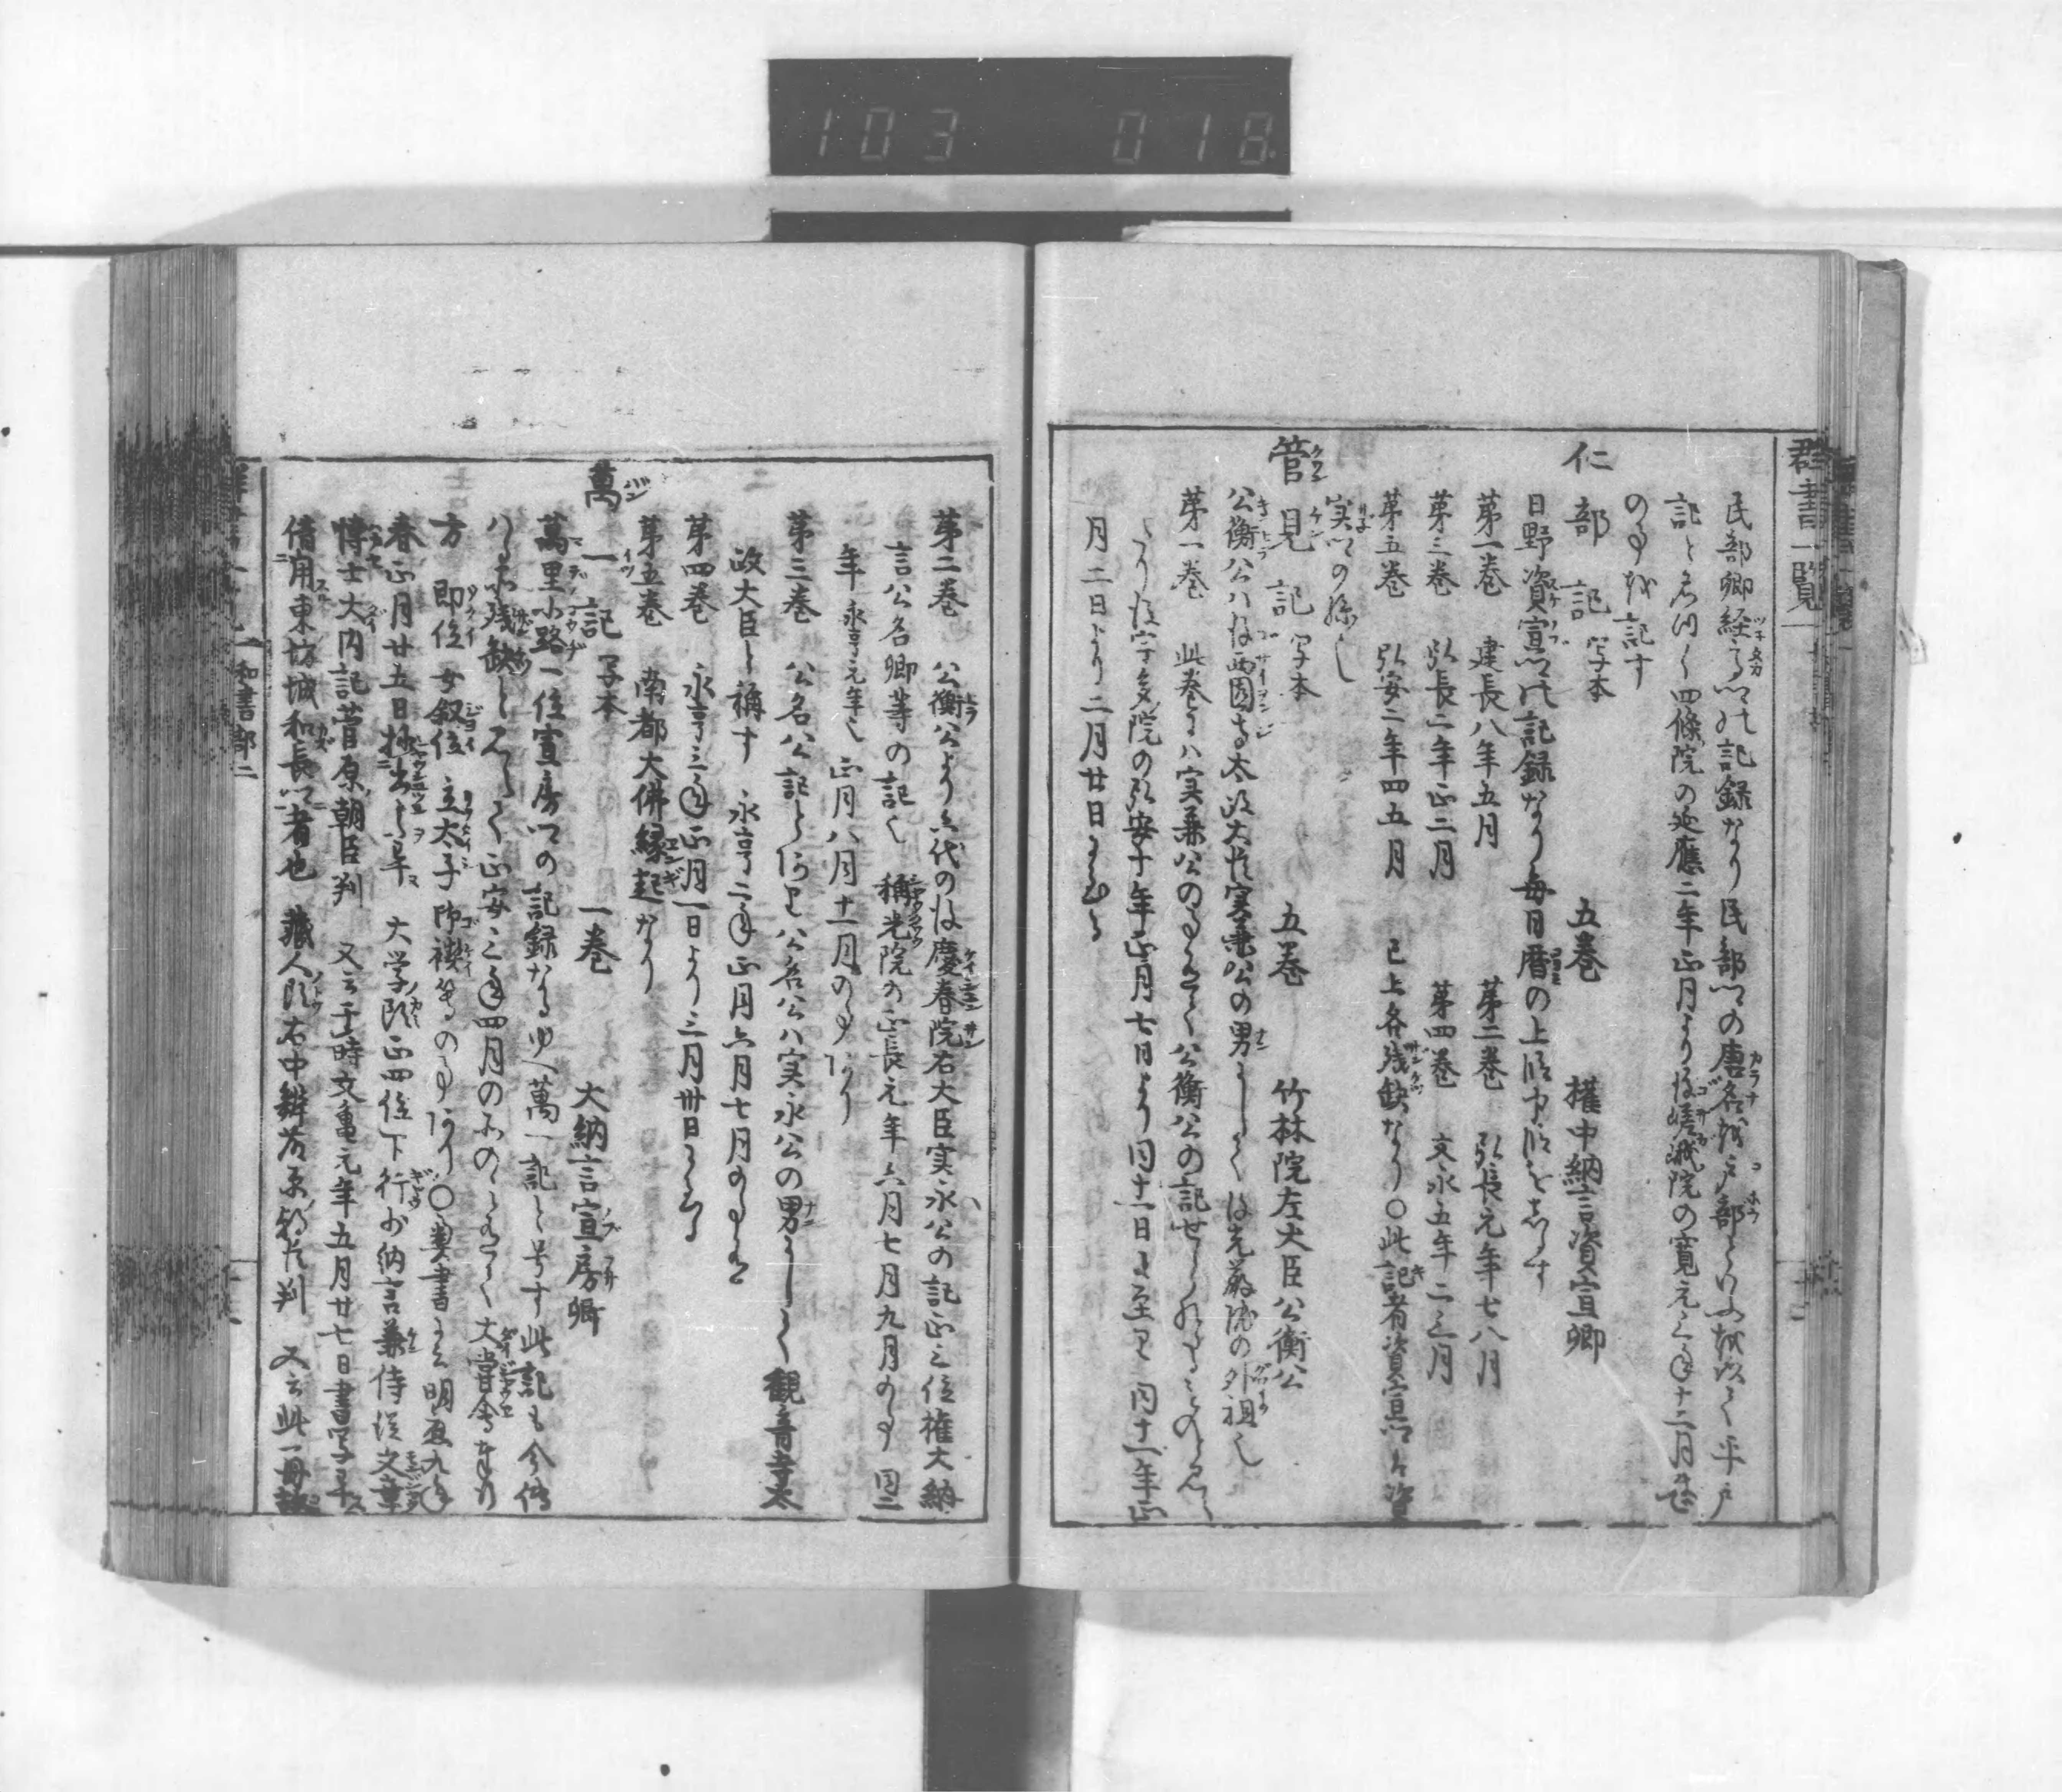 103 018
群書一覧
民部卿経高卿の記録なり民部卿の唐名を戸部といふ故にて平戸
記と名つく四條院の延應二年正月より後嵯峨院の寛元三年十二月まて
の事を記す
仁部記 写本 五巻 権中納言資宣卿
日野資宣卿の記録なり毎日暦の上段中段をしるす
第一巻 建長八年五月 第二巻 弘長元年七八月
第三巻 弘長二年正二月 第四巻 文永五年二三月
第五巻 弘安二年四五月 已上各残缺なり〇此記者資宣卿は資
実卿の孫也
管見記 写本 五巻 竹林院左大臣公衡公
公衡公ハ後西園寺太政大臣実兼公の男にして後光厳院の外祖也
第一巻 此巻にハ実兼公の事にて公衡公の記せしなるものと見
たり後宇多院の弘安十年正月七日より同十一日に至り同十一年正
月二日より二月廿日にいたる
第二巻 公衡公より六代の後慶春院右大臣実永公の記正三位権大納
言公名卿等の記く 稱光院の正長元年六月七月九月の事 同二
年 永享元年く 正月八月十一月の事あり
第三巻 公名公記とあり公名公ハ実永公の男にして観音寺太
政大臣と稱す 永享二年正月六月七月の事
第四巻 永享三年正月一日より三月卅日にいたる
第五巻 南都大佛縁起なり
萬一記 写本 一巻 大納言宣房卿
萬里小路一位宣房卿の記録なるゆへ萬一記と号す此記も今傳
ハる所残缺して正安三年四月の所のミにて大嘗會奉行
方 即位 女叙位 立太子 御禊等の事あり〇奥書に云明應九年
春正月廿五日抄出之畢 大学頭正四位下行少納言兼侍従文章
博士大内記菅原朝臣判 又云于時文亀元年五月廿七日書写畢
借用東坊城和長卿者也 蔵人頭右中辨 判 又云此一冊
和書部二